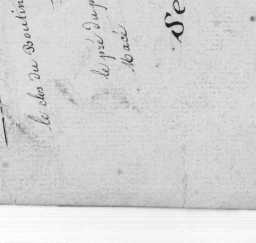 le clos du Boutin
le pré du p
Macé
Se